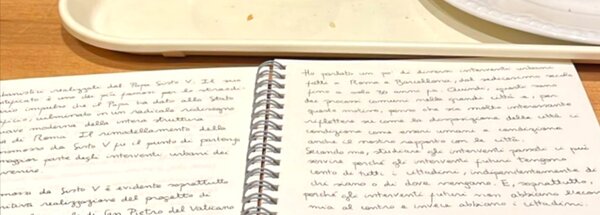 urbanistico realizzato dal Papa Sisto V. Il suo
pontificato è uno dei più famosi per lo straordi-
nario impulso che il Papa ha dato allo Stato
culminato in un radicale ridisegno
in chiave moderna della intera struttura
di Roma. Il rimodellamento della
da Sisto V fu il punto di partenza
maggior parte degli interventi urbani dei
da Sisto V è evidente soprattutto
realizzazione del progetto di
di San Pietro del Vaticano
Ho parlato un po' di diversi interventi urbani
fatti a Roma e Barcellona, dal sedicesimo secolo
fino a solo 30 anni fa. Quindi, questi sono
dei processi comuni nelle grandi città e, per
questo motivo, penso che sia molto interessante
riflettere su come la disposizione delle città ci
condiziona come esseri umani e condiziona
anche il nostro rapporto con le città.
Secondo me, studiare gli interventi passati ci può
servire perché gli interventi futuri tengano
conto di tutti i cittadini, indipendentemente da
chi siano o di dove vengano. E, soprattutto,
perché gli interventi futuri non abbiano l'econo-
mia al centro e invece abbiano i cittadini.